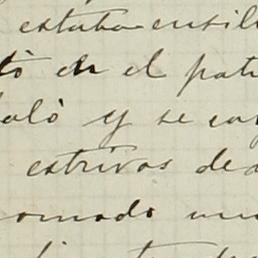 estaba ensil
tò en el pati
alò y se ca
estrivos de
omado un